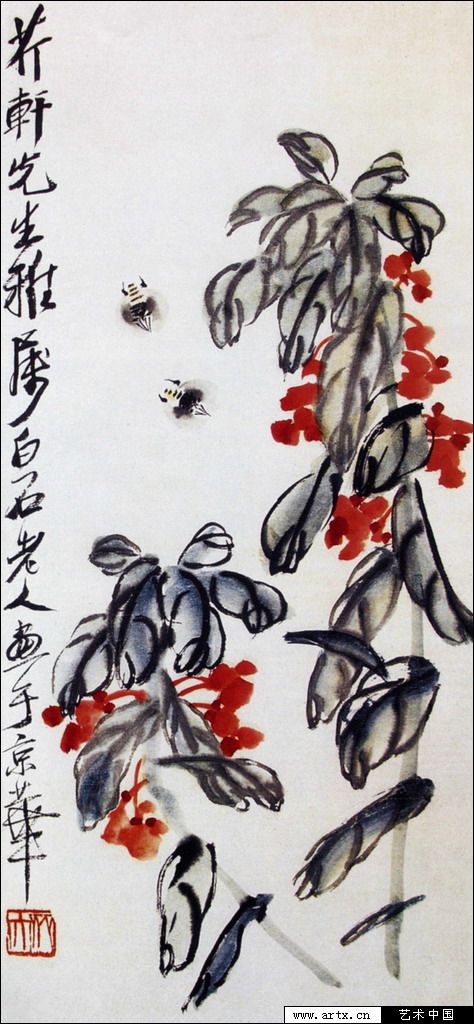 芥軒先生雅屬白石老人畫于京華
www.artx.cn 艺术中国